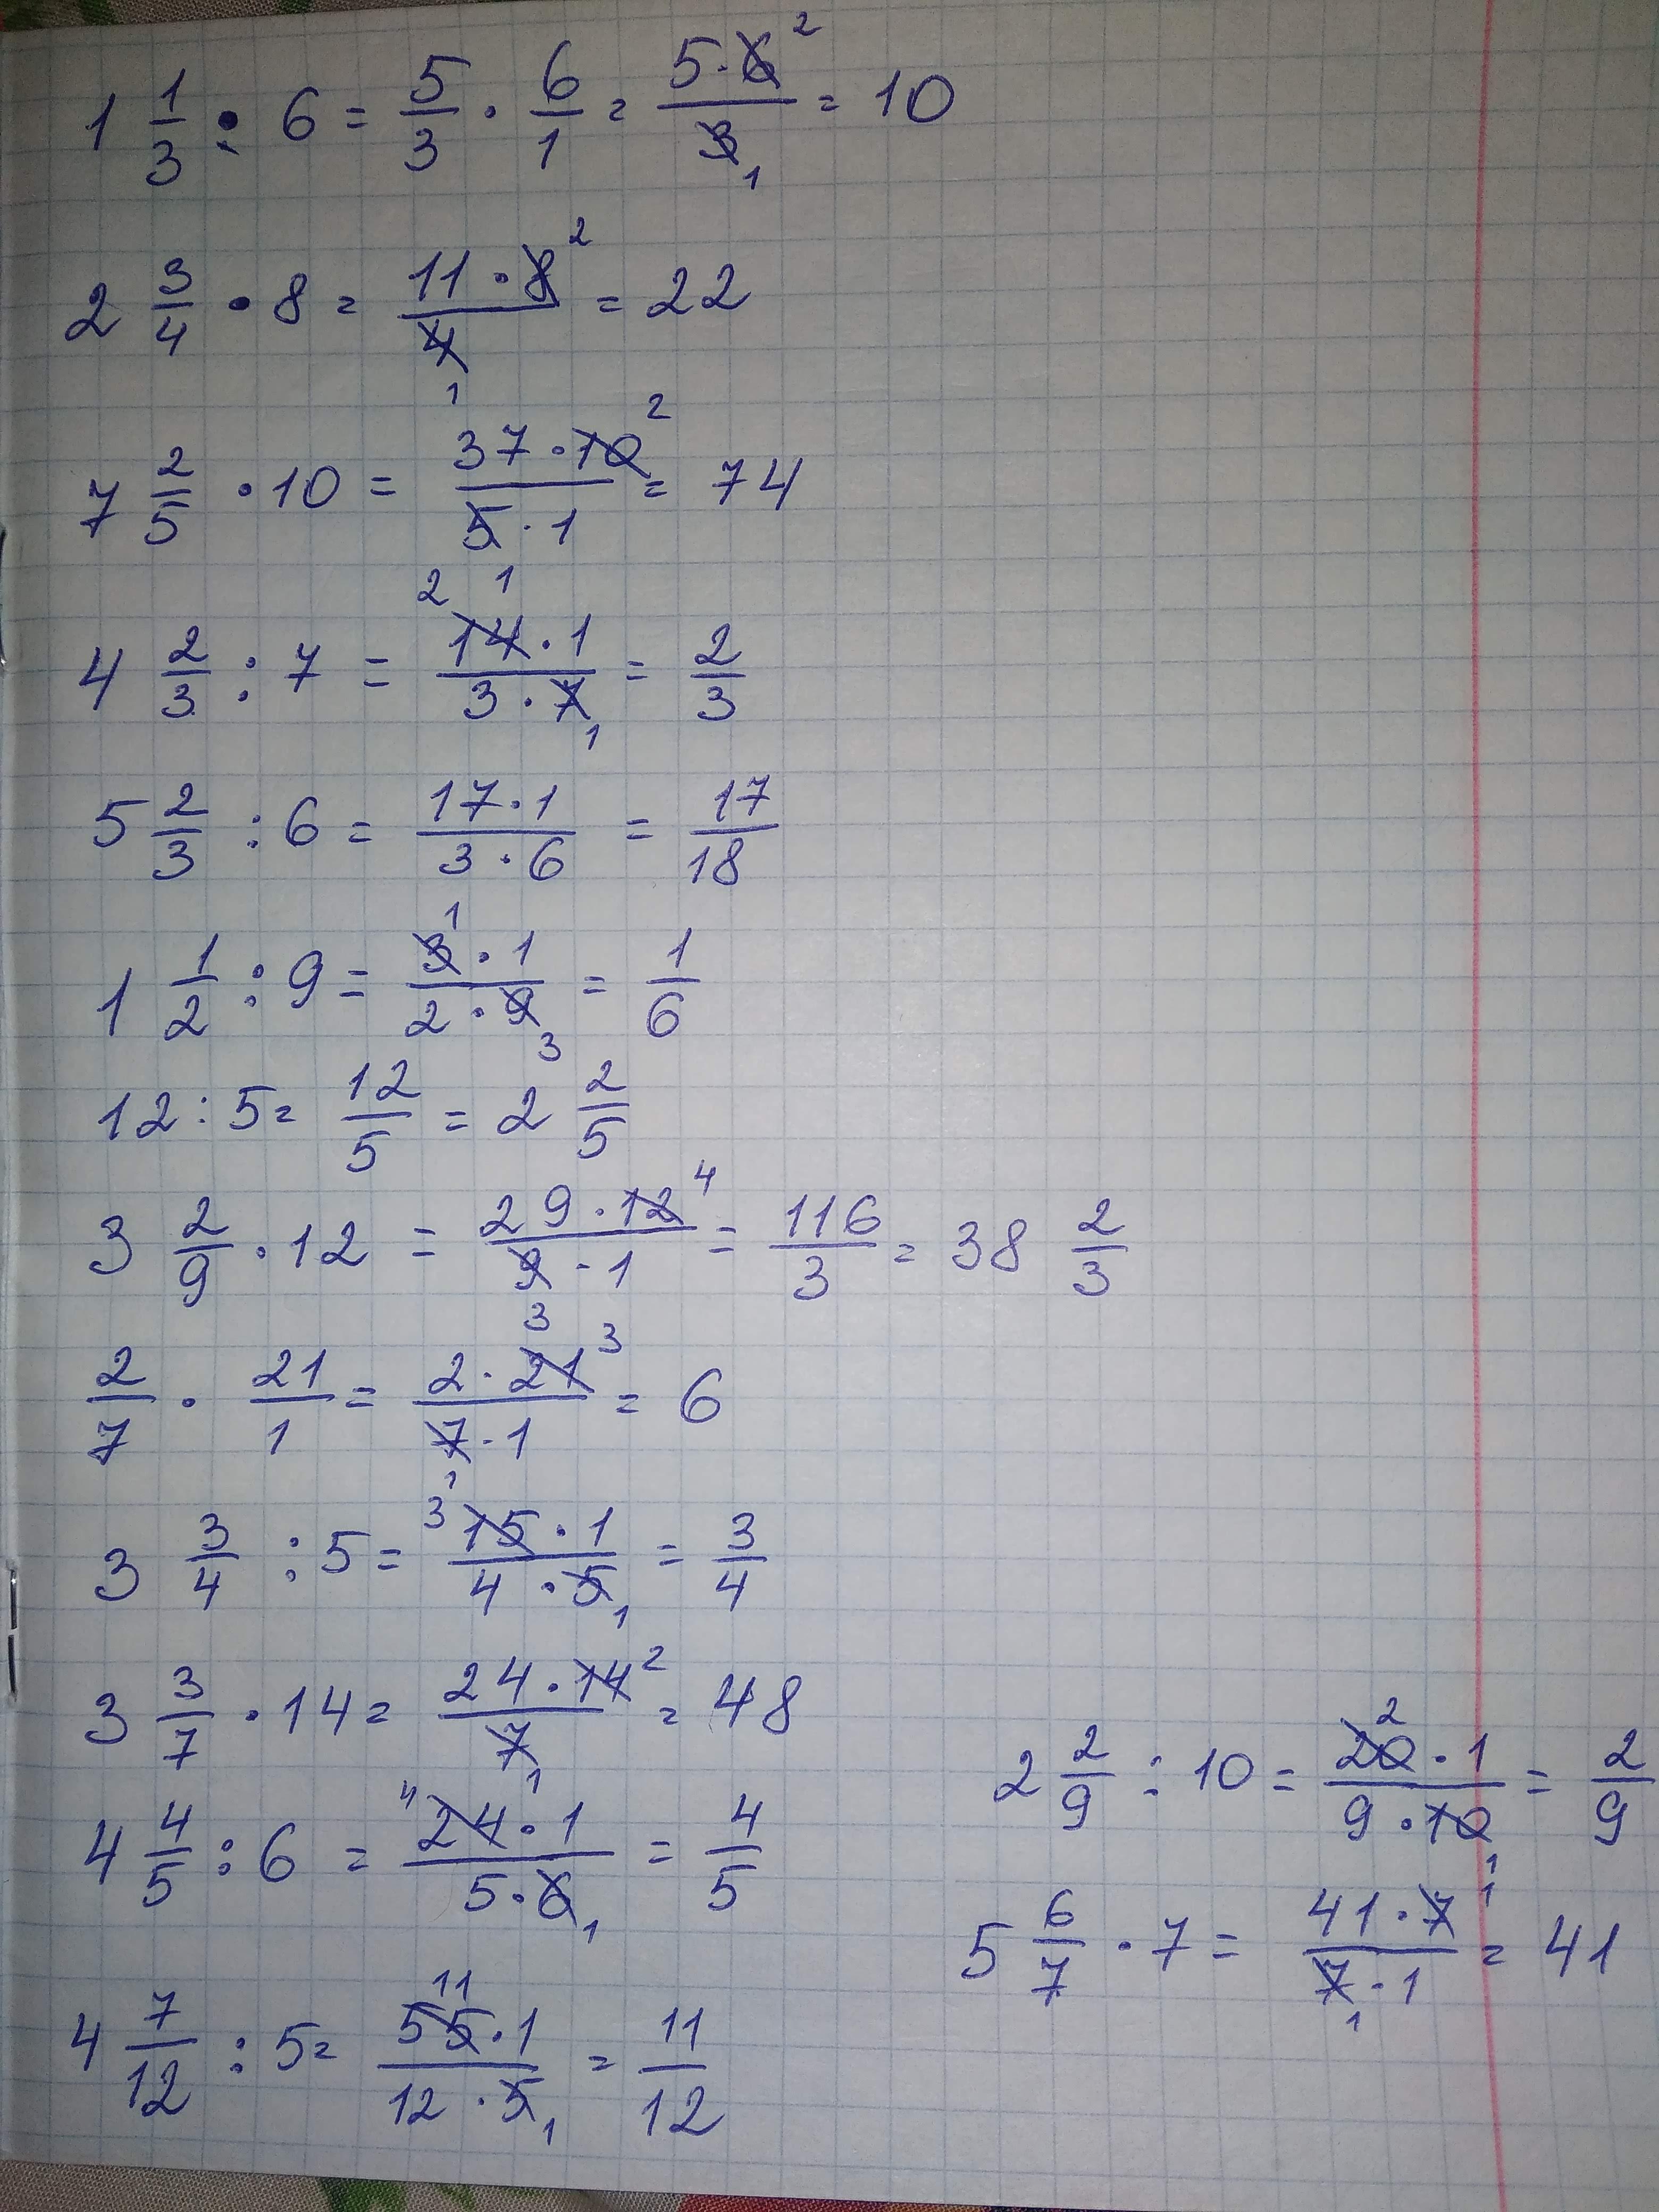 1 1/3 : 6 = 5/3 · 6/1 = 5·6 2 / 3 1 = 10
2 3/4 · 8 = 11·8 2 / 4 1 = 22
7 2/5 · 10 = 37·10 2 / 5·1 = 74
4 2/3 : 7 = 2 1 14·1 / 3·7 1 = 2/3
5 2/3 : 6 = 17·1 / 3·6 = 17/18
1 1/2 : 9 = 1 3·1 / 2·9 3 = 1/6
12 : 5 = 12/5 = 2 2/5
3 2/9 · 12 = 29·12 4 / 9·1 3 = 116/3 = 38 2/3
2/7 · 21/1 = 2·21 3 / 7·1 1 = 6
3 3/4 : 5 = 3 15·1 / 4·5 1 = 3/4
3 3/7 · 14 = 24·14 2 / 7 1 = 48
4 4/5 : 6 = 4 24·1 / 5·6 1 = 4/5
4 7/12 : 5 = 11 55·1 / 12·5 1 = 11/12
2 2/9 : 10 = 2 20·1 / 9·10 1 = 2/9
5 6/7 · 7 = 41·7 1 / 7·1 1 = 41